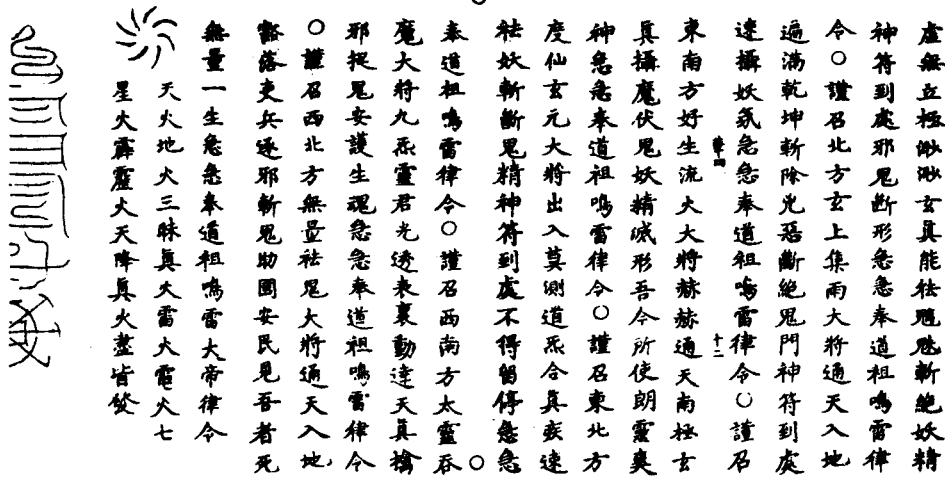 虛無立極渺渺玄真能祛魑魅斬絶妖精
神符到處邪鬼斷形急急奉道祖鳴雷律
令○謹召北方玄上集雨大將通天入地
遍滿乾坤斬除兇惡斷絕鬼門神符到處
速攝妖氛急急奉道祖鳴雷律令○謹召
十二
東南方好生流火大將赫赫通天南極玄
真攝魔伏鬼妖精滅形吾今所使朗靈奭
神急急奉道祖鳴雷律令○謹召東北方
度仙玄元大將出入莫測道炁合真疾速
祛妖斬斷鬼精神符到處不得留停急急
奉道祖鳴雷律令○謹召西南方太靈吞
魔大將九炁靈君光透表裏動達天真擒
邪捉鬼安護生魂急急奉道祖鳴雷律令
○謹召西北方無量祛鬼大將通天入地
豁落吏兵逐邪斬鬼助國安民見吾者死
無量一生急急奉道祖鳴雷大帝律令
天火地火三昧真火雷火電火七
星火霹靂火天降真火盡皆發